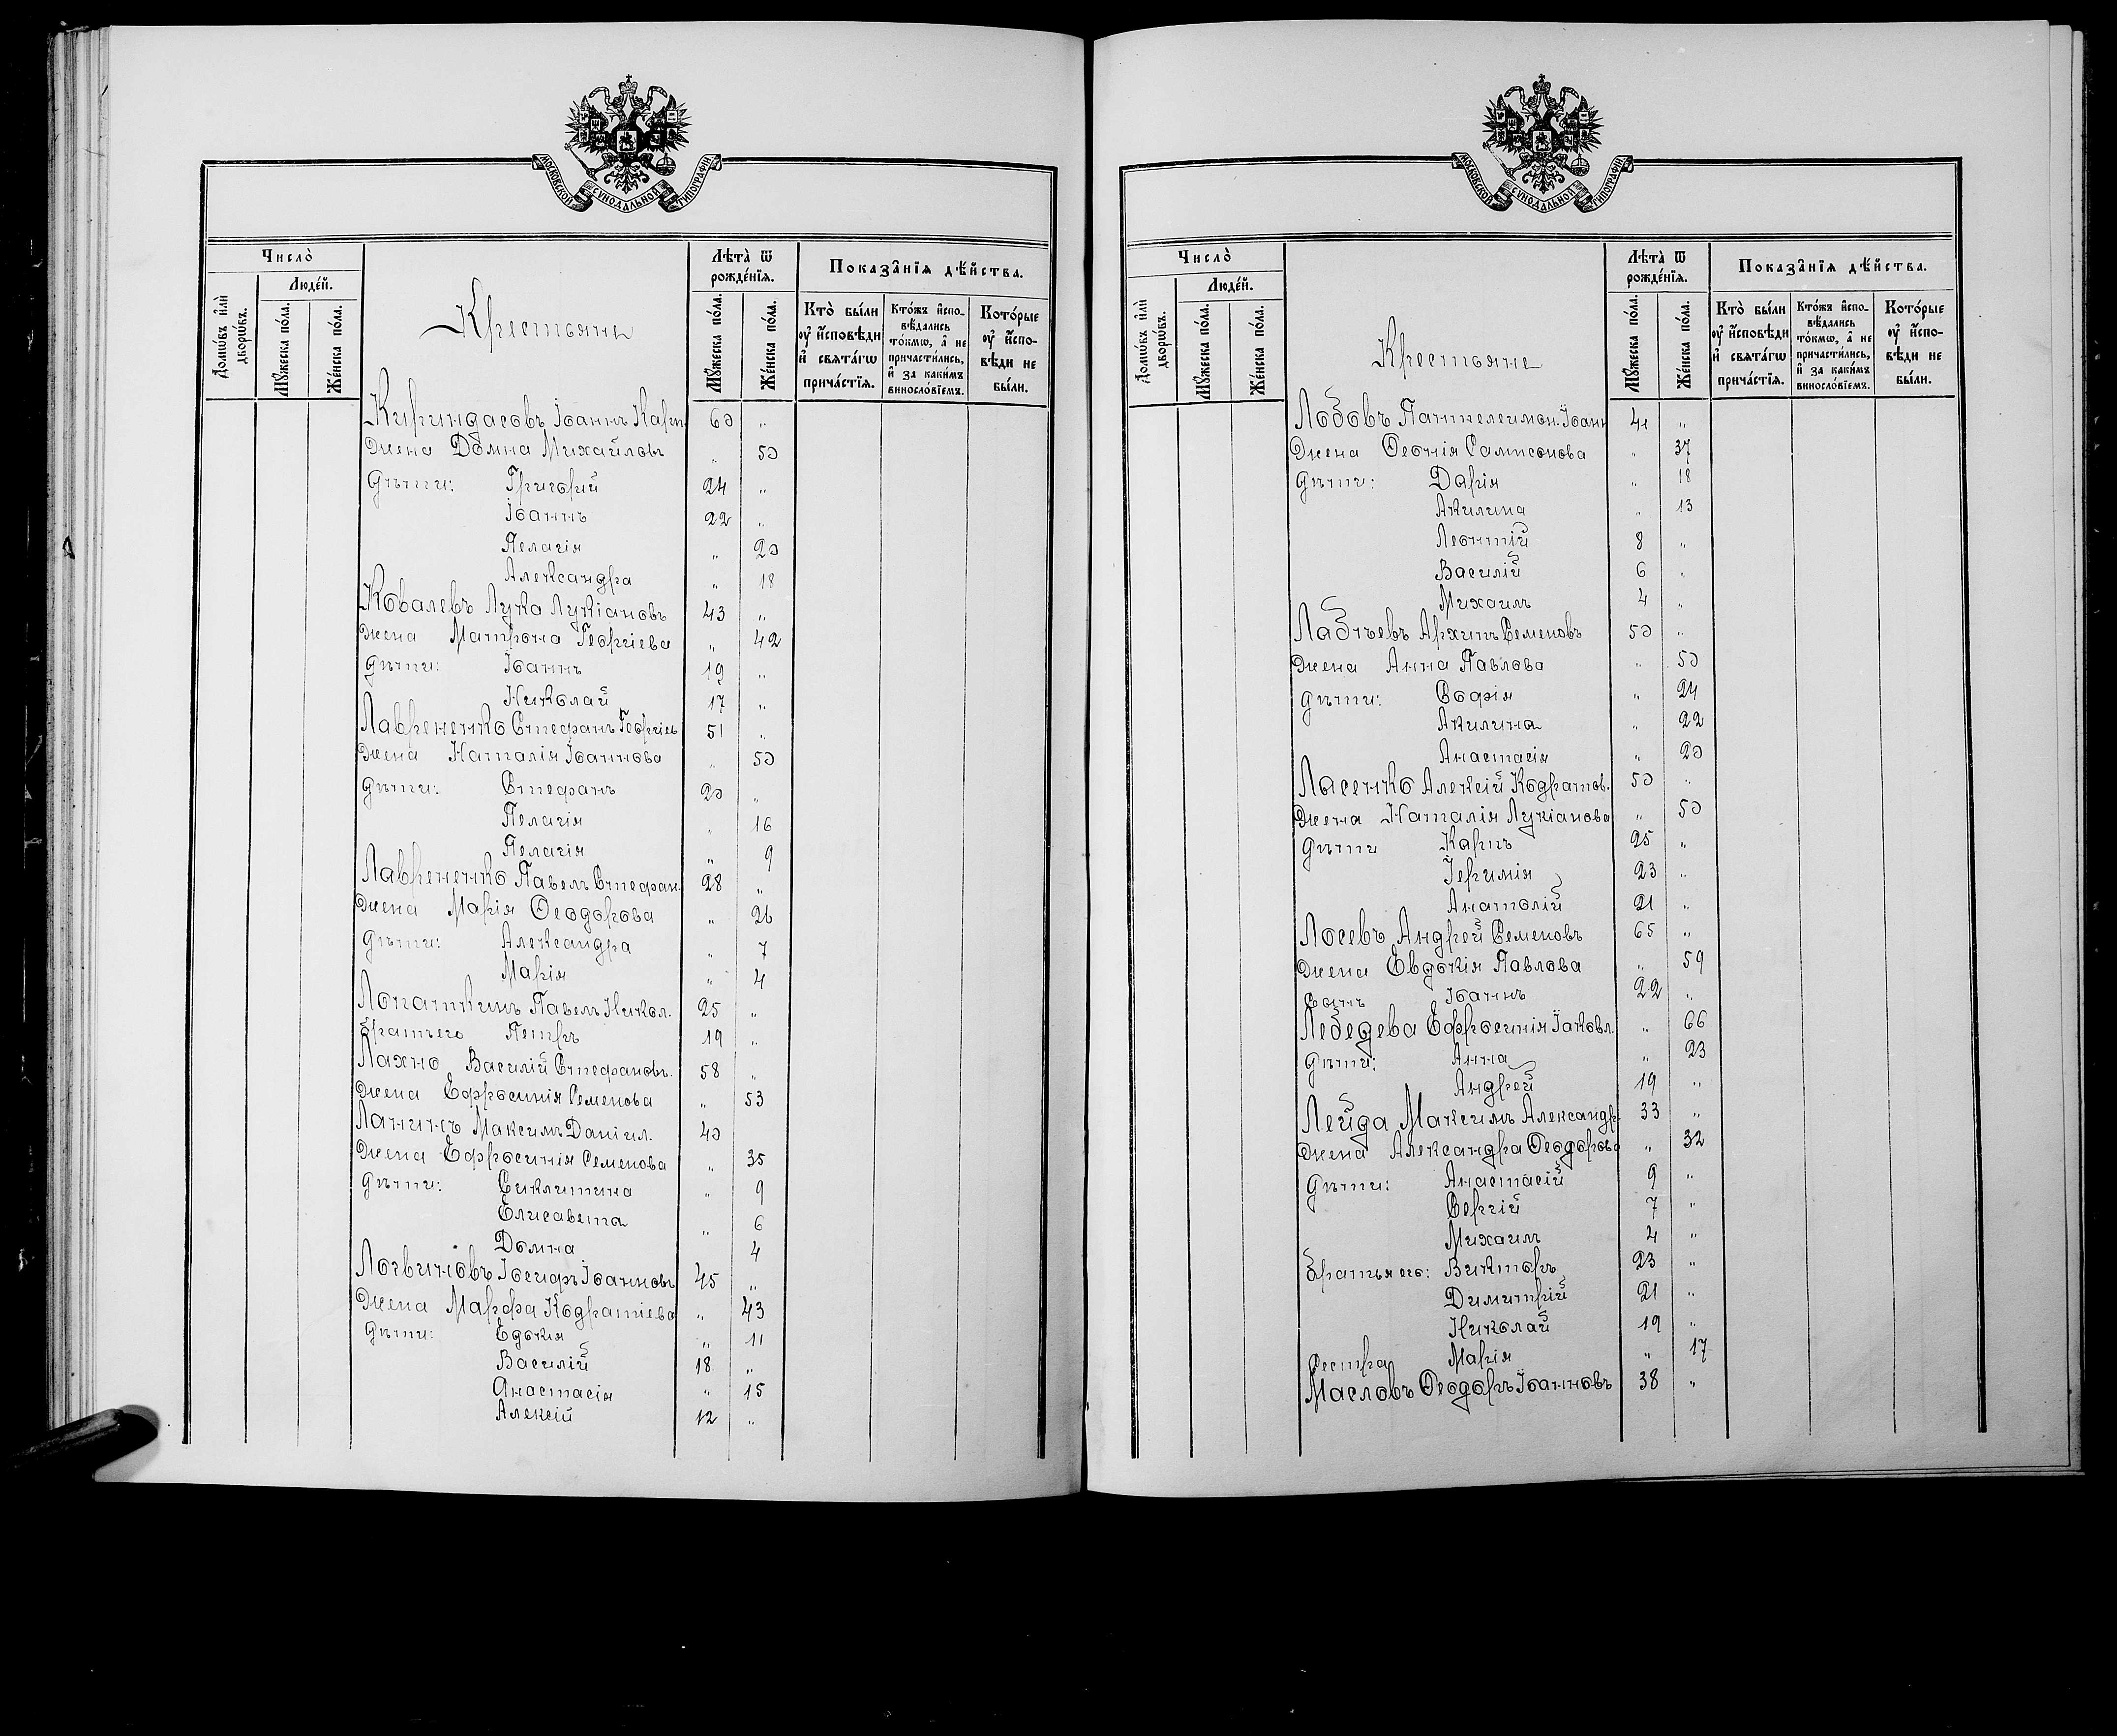 МОСКОВСКОЙ СУНОДАЛЬНОЙ ТИПОГРАФІИ
Число̀
Людéй.
Домѡ́въ и҆лѝ дворѡ́въ.
Мꙋ́жеска по́ла.
Же́нска по́ла.
Крестьяне
Лѣта̀ ѿ рожде́нїѧ.
Мꙋ́жеска по́ла.
Же́нска по́ла.
Показа̑нїѧ дѣ́йства.
Кто̀ бы́ли ᲂу҆ и҆́сповѣди и҆ свѧта́гѡ прича́стїѧ.
Кто́жъ и҆спо-вѣ́дались то́кмѡ, а҆ не причасти́лись, и҆ за каки́мъ винослові́емъ.
Кото́рые ᲂу҆ и҆́спо-вѣди не бы́ли.
Кириндасовъ Іоаннъ Карп. 60 „
Жена Домна Михайловъ „ 50
Дѣти: Григорій 24 „
Іоаннъ 22 „
Пелагія „ 20
Александра „ 18
Ковалевъ Лука Лукіановъ 43 „
Жена Матрона Георгіева „ 42
Дѣти: Іоаннъ 19 „
Николай 17 „
Лавріненко Стефанъ Георгіев 51 „
Жена Наталія Іоаннова „ 50
Дѣти: Стефанъ 20 „
Пелагія „ 16
Пелагія „ 9
Лавріненко Павелъ Стефан. 28 „
Жена Марія Ѳеодорова „ 26
Дѣти: Александра „ 7
Марія „ 4
Лопаткинъ Павелъ Никол. 25 „
братъ его Петръ 19 „
Лахно Василій Стефановъ. 58 „
Жена Ефросинія Семенова „ 53
Ланинъ Максимъ Даніил. 40
Жена Ефросинія Семенова „ 35
Дѣти: Сиклитина „ 9
Елисавета „ 6
Домна 4
Логвиновъ Іосифъ Іоанновъ 45 „
Жена Марфа Кодратіева „ 43
Дѣти: Едокія „ 11
Василій 18 „
Анастасія „ 15
Алексій 12 „
МОСКОВСКОЙ СУНОДАЛЬНОЙ ТИПОГРАФІИ
Число̀
Людéй.
Домѡ́въ и҆лѝ дворѡ́въ.
Мꙋ́жеска по́ла.
Же́нска по́ла.
Крестьяне
Лѣта̀ ѿ рожде́нїѧ.
Мꙋ́жеска по́ла.
Же́нска по́ла.
Показа̑нїѧ дѣ́йства.
Кто̀ бы́ли ᲂу҆ и҆́сповѣди и҆ свѧта́гѡ прича́стїѧ.
Кто́жъ и҆спо-вѣ́дались то́кмѡ, а҆ не причасти́лись, и҆ за каки́мъ винослові́емъ.
Кото́рые ᲂу҆ и҆́спо-вѣди не бы́ли.
Лобовъ Пантелеимон. Іоанн 41 „
Жена Ѳеонія Сампсонова „ 37
Дѣти: Дарія „ 18
Акилина „ 13
Леонтій 8 „
Василій 6 „
Михаилъ 4 „
Лабтьевъ Архипъ Семеновъ 50 „
Жена Анна Павлова „ 50
Дѣти: Софія „ 24
Акилина „ 22
Анастасія „ 20
Ласенко Алексій Кодратов. 50 „
Жена Наталія Лукіанова „ 50
Дѣти Карпъ 25 „
Іеримія 23 „
Анатолій 21 „
Лосевъ Андрей Семеновъ 65 „
Жена Евдокія Павлова „ 59
Сынъ Іоаннъ 22 „
Лебедева Ефросинія Іаковл. „ 66
Дѣти: Анна „ 23
Андрей 19 „
Лейда Максимъ Александр. 33 „
Жена Александра Ѳеодорова „ 32
Дѣти: Анастасій 9 „
Сергій 7 „
Михаилъ 4 „
братья его: Викторъ 23 „
Димитрій 21 „
Николай 19 „
Сестра Марія „ 17
Масловъ Ѳеодоръ Іоанновъ 38 „